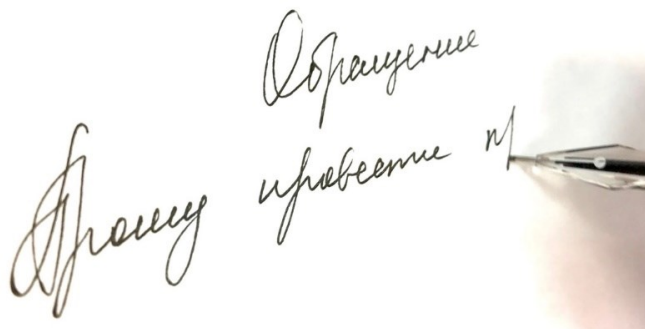 Обращение
Прошу провести пр